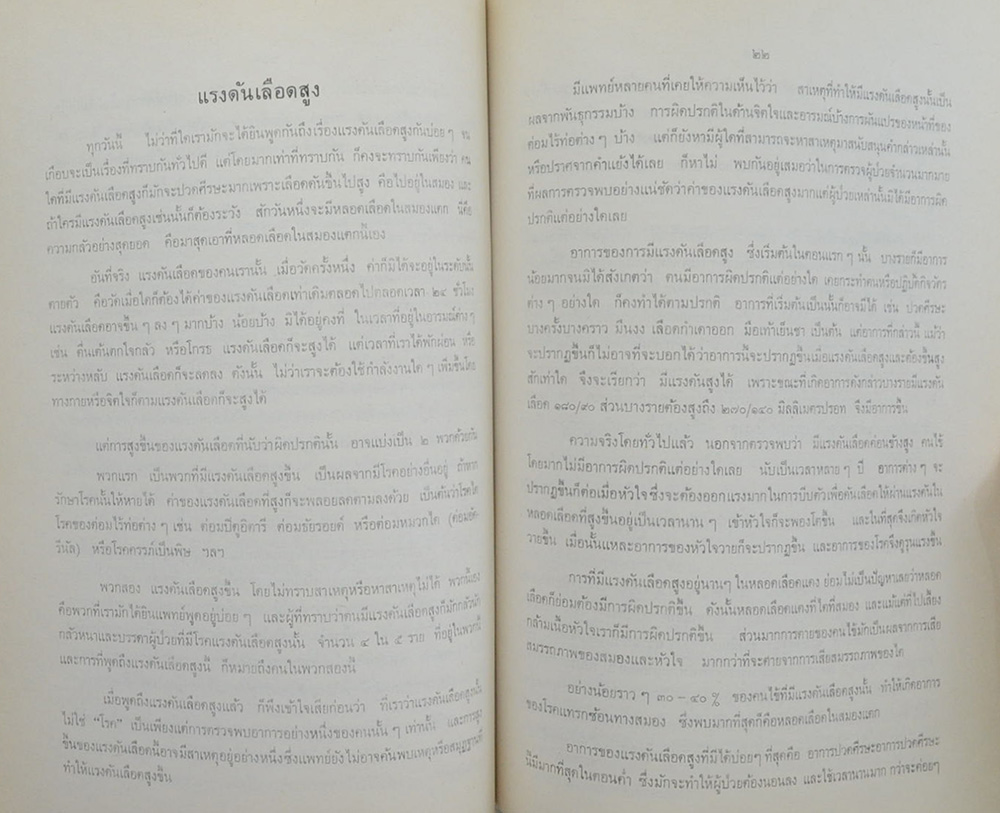 แรงดันเลือดสูง
ทุกวันนี้ ไม่ว่าที่ใดเรามักจะได้ยินพูดกันถึงเรื่องแรงดันเลือดสูงกันบ่อย ๆ จน
เกือบจะเป็นเรื่องที่ทราบกันทั่วไปดี แต่โดยมากเท่าที่ทราบกัน ก็คงจะทราบกันเพียงว่า คน
ใดที่มีแรงดันเลือดสูงก็มักจะปวดศีรษะมากเพราะเลือดดันขึ้นไปสูง คือไปอยู่ในสมอง และ
ถ้าใครมีแรงดันเลือดสูงเช่นนั้นก็ต้องระวัง สักวันหนึ่งจะมีหลอดเลือดในสมองแตก นี่คือ
ความกลัวอย่างสุดยอด คือมาสุดเอาที่หลอดเลือดในสมองแตกนี่เอง
อันที่จริง แรงดันเลือดของคนเรานั้น เมื่อวัดครั้งหนึ่ง ค่าก็มิได้จะอยู่ในระดับนั้น
ตายตัว คือวัดเมื่อใดก็ต้องได้ค่าของแรงดันเลือดเท่าเดิมตลอดไปตลอดเวลา ๒๔ ชั่วโมง
แรงดันเลือดอาจขึ้น ๆ ลง ๆ มากบ้าง น้อยบ้าง มิได้อยู่คงที่ ในเวลาที่อยู่ในอารมณ์ต่าง ๆ
เช่น ตื่นเต้นตกใจกลัว หรือโกรธ แรงดันเลือดก็จะสูงได้ แต่เวลาที่เราได้พักผ่อน หรือ
ระหว่างหลับ แรงดันเลือดก็จะลดลง ดังนั้น ไม่ว่าเราจะต้องใช้กำลังงานใด ๆ เพิ่มขึ้นโดย
ทางกายหรือจิตใจก็ตามแรงดันเลือดก็จะสูงได้
แต่การสูงขึ้นของแรงดันเลือดที่นับว่าผิดปรกตินั้น อาจแบ่งเป็น ๒ พวกด้วยกัน
พวกแรก เป็นพวกที่มีแรงดันเลือดสูงขึ้น เป็นผลจากมีโรคอย่างอื่นอยู่ ถ้าหาก
รักษาโรคนั้นให้หายได้ ค่าของแรงดันเลือดที่สูงก็จะพลอยลดตามลงด้วย เป็นต้นว่าโรคไต
โรคของต่อมไร้ท่อต่าง ๆ เช่น ต่อมปิตูอิตารี ต่อมธัยรอยด์ หรือต่อมหมวกไต (ต่อมอัด
รีนัล) หรือโรคครรภ์เป็นพิษ ฯลฯ
พวกสอง แรงดันเลือดสูงขึ้น โดยไม่ทราบสาเหตุหรือหาสาเหตุไม่ได้ พวกนี้เอง
คือพวกที่เรามักได้ยินแพทย์พูดอยู่บ่อย ๆ และผู้ที่ทราบว่าตนมีแรงดันเลือดสูงก็มักกลัวนัก
กลัวหนาและบรรดาผู้ป่วยที่มีโรคแรงดันเลือดสูงนั้น จำนวน ๔ ใน ๕ ราย ที่อยู่ในพวกนี้
และการที่พูดถึงแรงดันเลือดสูงนี้ ก็หมายถึงคนในพวกสองนี้
เมื่อพูดถึงแรงดันเลือดสูงแล้ว ก็พึงเข้าใจเสียก่อนว่า ที่เราว่าแรงดันเลือดสูงนั้น
ไม่ใช่ “โรค” เป็นเพียงแต่การตรวจพบอาการอย่างหนึ่งของคนนั้น ๆ เท่านั้น และการสูง
ขึ้นของแรงดันเลือดนี้อาจมีสาเหตุอยู่อย่างหนึ่งซึ่งแพทย์ยังไม่อาจค้นพบเหตุหรือสมุฏฐานที่
ทำให้แรงดันเลือดสูงขึ้น
๒๒
มีแพทย์หลายคนที่เคยให้ความเห็นไว้ว่า สาเหตุที่ทำให้มีแรงดันเลือดสูงนั้นเป็น
ผลจากพันธุกรรมบ้าง การผิดปรกติในด้านจิตใจและอารมณ์บ้างการผันแปรของหน้าที่ของ
ต่อมไร้ท่อต่าง ๆ บ้าง แต่ก็ยังหามีผู้ใดที่สามารถจะหาสาเหตุมาสนับสนุนคำกล่าวเหล่านั้น
หรือปราศจากคำแย้งได้เลย ก็หาไม่ พบกันอยู่เสมอว่าในการตรวจผู้ป่วยจำนวนมากมาย
ที่ผลการตรวจพบอย่างแน่ชัดว่าค่าของแรงดันเลือดสูงมากแต่ผู้ป่วยเหล่านั้นมิได้มีอาการผิด
ปรกติแต่อย่างใดเลย
อาการของการมีแรงดันเลือดสูง ซึ่งเริ่มต้นในตอนแรก ๆ นั้น บางรายก็มีอาการ
น้อยมากจนมิได้สังเกตว่า ตนมีอาการผิดปรกติแต่อย่างใด เคยกระทำตนหรือปฏิบัติกิจวัตร
ต่าง ๆ อย่างใด ก็คงทำได้ตามปรกติ อาการที่เริ่มต้นเป็นนั้นก็อาจมีได้ เช่น ปวดศีรษะ
บางครั้งบางคราว มึนงง เลือดกำเดาออก มือเท้าเย็นชา เป็นต้น แต่อาการที่กล่าวนี้ แม้ว่า
จะปรากฏขึ้นก็ไม่อาจที่จะบอกได้ว่าอาการนี้จะปรากฏขึ้นเมื่อแรงดันเลือดสูงและต้องขึ้นสูง
สักเท่าใด จึงจะเรียกว่า มีแรงดันสูงได้ เพราะขณะที่เกิดอาการดังกล่าวบางรายมีแรงดัน
เลือด ๑๘๐/๙๐ ส่วนบางรายต้องสูงถึง ๒๗๐/๑๔๐ มิลลิเมตรปรอท จึงมีอาการขึ้น
ความจริงโดยทั่วไปแล้ว นอกจากตรวจพบว่า มีแรงดันเลือดค่อนข้างสูง คนไข้
โดยมากไม่มีอาการผิดปรกติแต่อย่างใดเลย นับเป็นเวลาหลาย ๆ ปี อาการต่าง ๆ จะ
ปรากฏขึ้นก็ต่อเมื่อหัวใจซึ่งจะต้องออกแรงมากในการบีบตัวเพื่อดันเลือดให้ผ่านแรงดันใน
หลอดเลือดที่สูงขึ้นอยู่เป็นเวลานาน ๆ เข้าหัวใจก็จะพองโตขึ้น และในที่สุดจึงเกิดหัวใจ
วายขึ้น เมื่อนั้นแหละอาการของหัวใจวายก็จะปรากฏขึ้น และอาการของโรคจึงดูรุนแรงขึ้น
การที่มีแรงดันเลือดสูงอยู่นานๆ ในหลอดเลือดแดง ย่อมไม่เป็นปัญหาเลยว่าหลอด
เลือดก็ย่อมต้องมีการผิดปรกติขึ้น ดังนั้นหลอดเลือดแดงที่ไตที่สมอง และแม้แต่ที่ไปเลี้ยง
กล้ามเนื้อหัวใจเราก็มีการผิดปรกติขึ้น ส่วนมากการตายของคนไข้มักเป็นผลจากการเสีย
สมรรถภาพของสมองและหัวใจ มากกว่าที่จะตายจากการเสียสมรรถภาพของไต
อย่างน้อยราว ๆ ๓๐ – ๔๐ % ของคนไข้ที่มีแรงดันเลือดสูงนั้น ทำให้เกิดอาการ
ของโรคแทรกซ้อนทางสมอง ซึ่งพบมากที่สุดก็คือหลอดเลือดในสมองแตก
อาการของแรงดันเลือดสูงที่มีได้บ่อยๆ ที่สุดคือ อาการปวดศีรษะอาการปวดศีรษะ
นี้มีมากที่สุดในตอนค่ำ ซึ่งมักจะทำให้ผู้ป่วยต้องนอนลง และใช้เวลานานมาก กว่าจะค่อยๆ